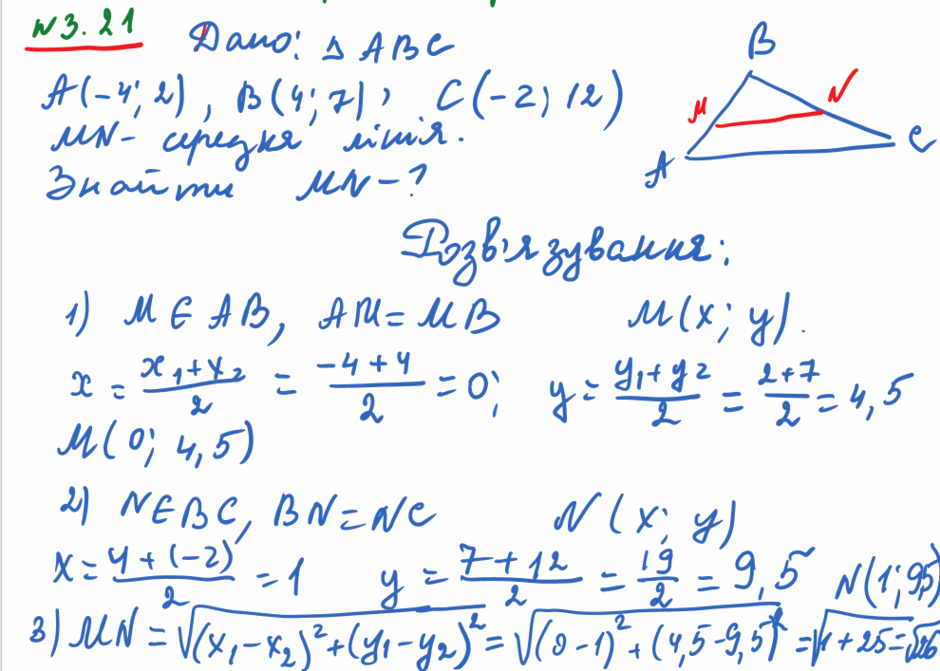 N3.21 Дано: Δ ABC
A(-4; 2), B(4; 7), C(-2; 12)
MN- середня лінія.
Знайти MN-?
B
M N
A C
Розв'язування:
1) M∈AB, AM=MB M(x; y).
x = (x₁+x₂)/2 = (-4+4)/2 = 0; y = (y₁+y₂)/2 = (2+7)/2 = 4,5
M(0; 4,5)
2) N∈BC, BN=NC N(x; y)
x = (4+(-2))/2 = 1 y = (7+12)/2 = 19/2 = 9,5 N(1; 9,5)
3) MN = √((x₁-x₂)²+(y₁-y₂)²) = √((0-1)²+(4,5-9,5)²) = √(1+25) = √26